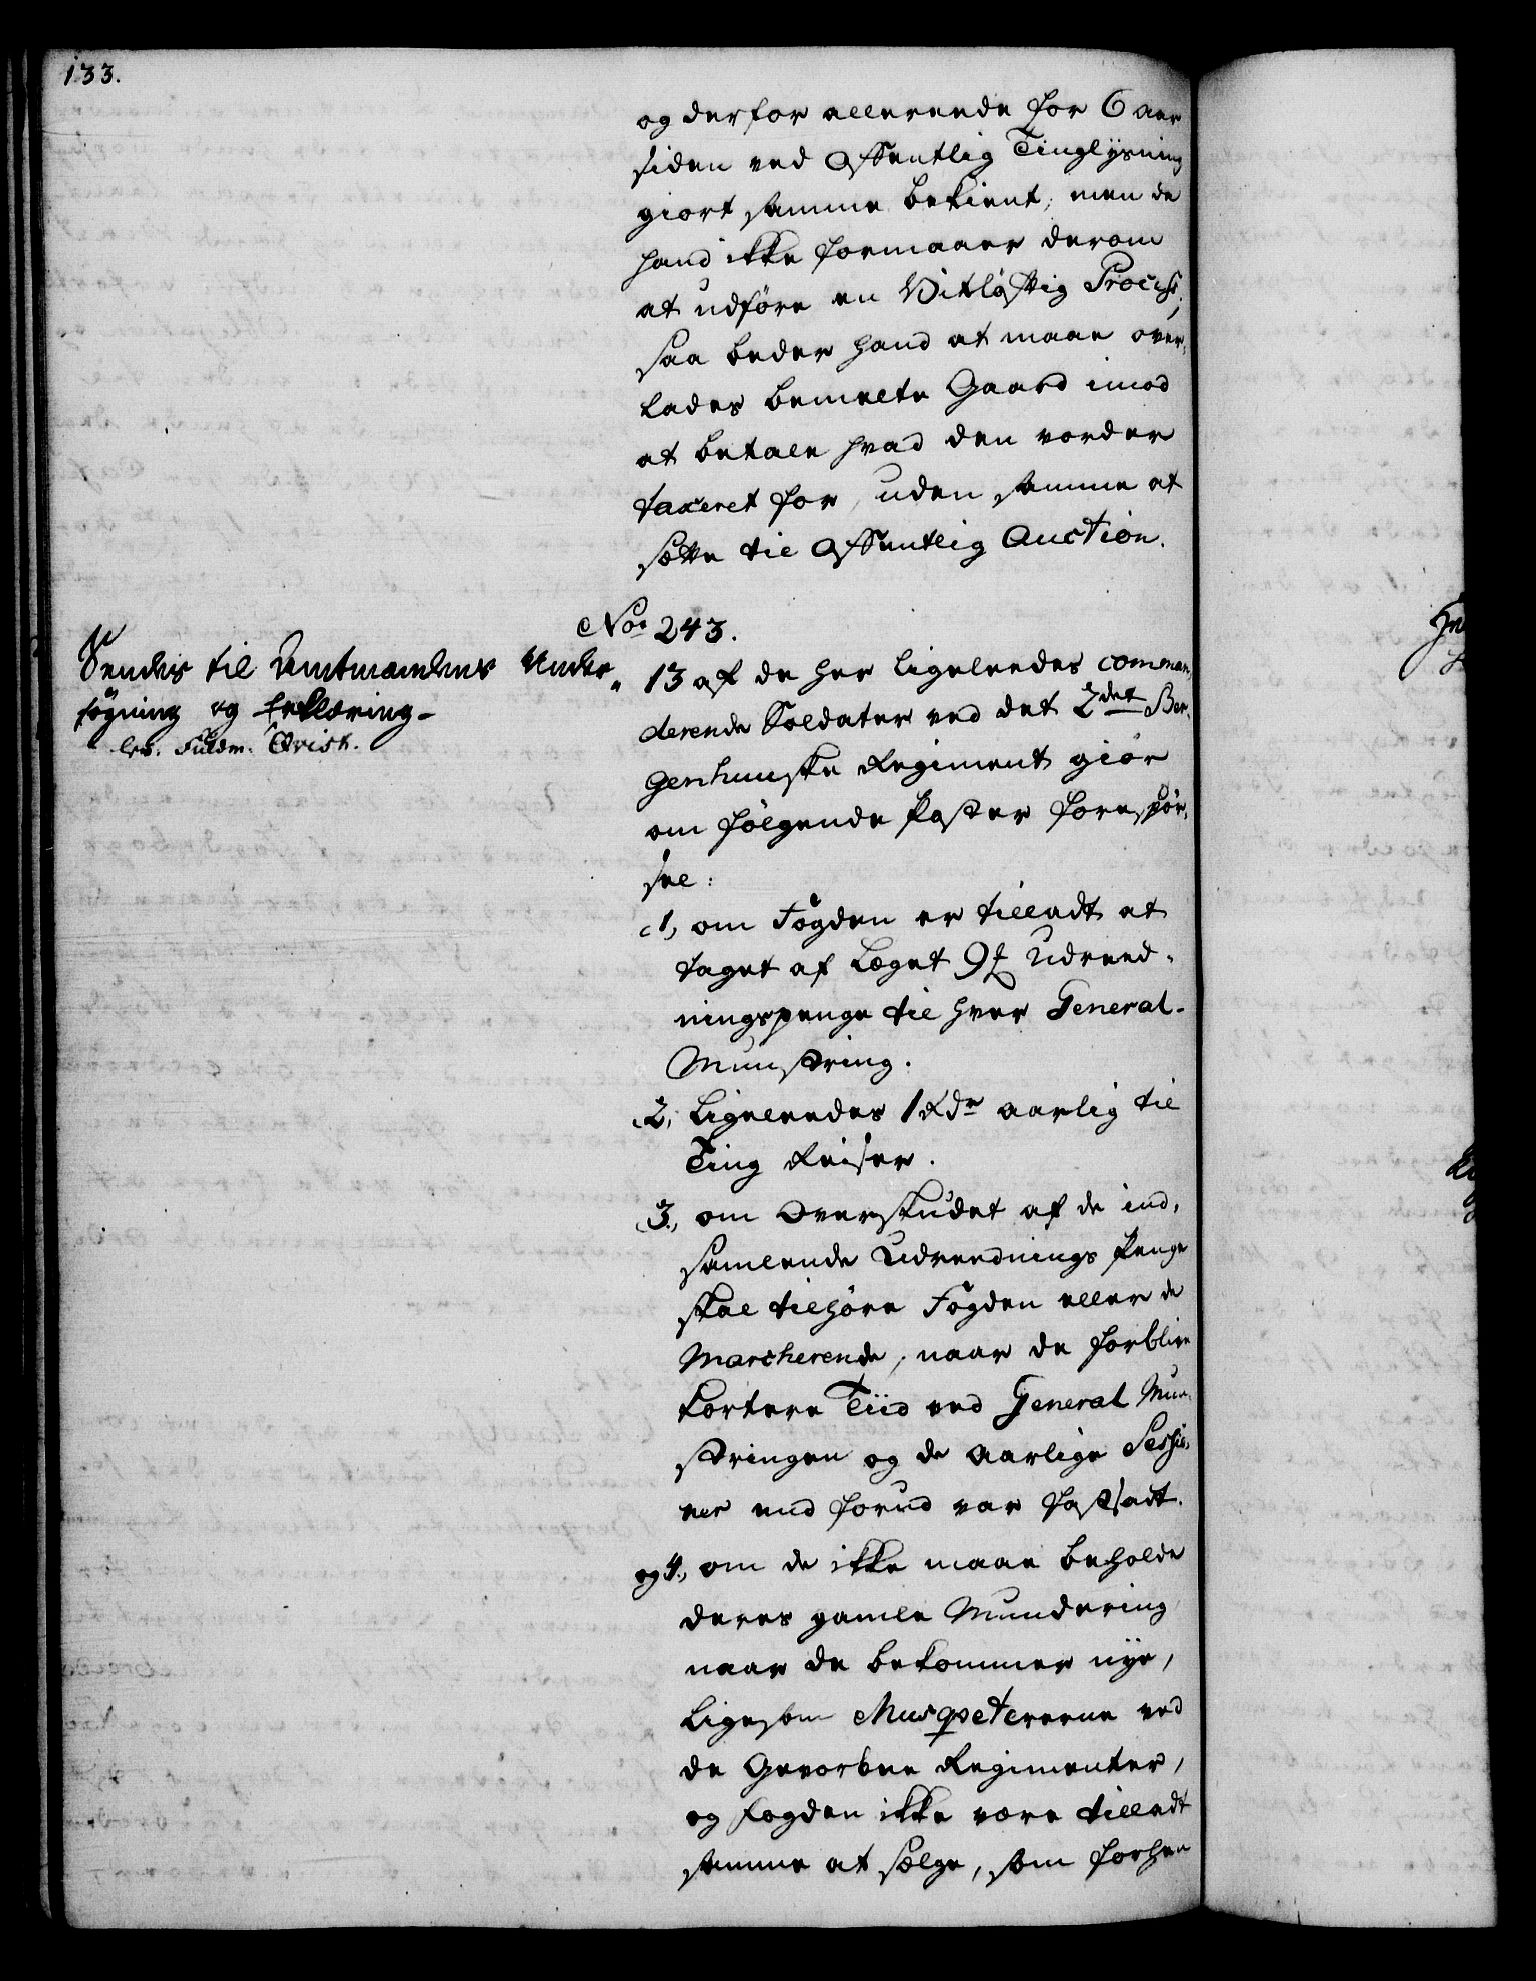 133.
og derfor allereede for 6 aar
siden ved offentlig Tinglysning
giort samme bekient; men da
hand ikke formaaer derom
at udføre en Vitløftig Process,
saa beder hand at maae over-
lades bemelte Gaard imod
at betale hvad den vorder
taxeret for, uden samme at
sætte til offentlig Auction.
No. 243.
Sendes til Amtmandens Under-
søgning og Erklæring-
lev. Fuldm. Qvist.
13 af de her ligeleedes comman-
derende Soldater ved det 2det Ber-
genhuuske Regiment giør
om følgende Poster forespør-
sel:
1, om Fogden er tilladt at
taget af Læget 9 ƶ Udreed-
ningspenge til hver General-
Munstring.
2, Ligeleedes 1 Rdr aarlig til
Ting Reiser.
3., om Overskudet af de ind-
samlende Udreednings Penge
skal tilhøre Fogden eller de
Marcherende, naar de forblive
kortere Tiid ved General Mun-
stringen og de aarlige Sessio-
ner end forud var fastsadt.
og 4., om de ikke maae beholde
deres gamle Mundering
naar de bekommer nye,
ligesom Musqveterene ved
de Gevorbne Regimenter,
og Fogden ikke være tilladt
samme at sælge, som forhen